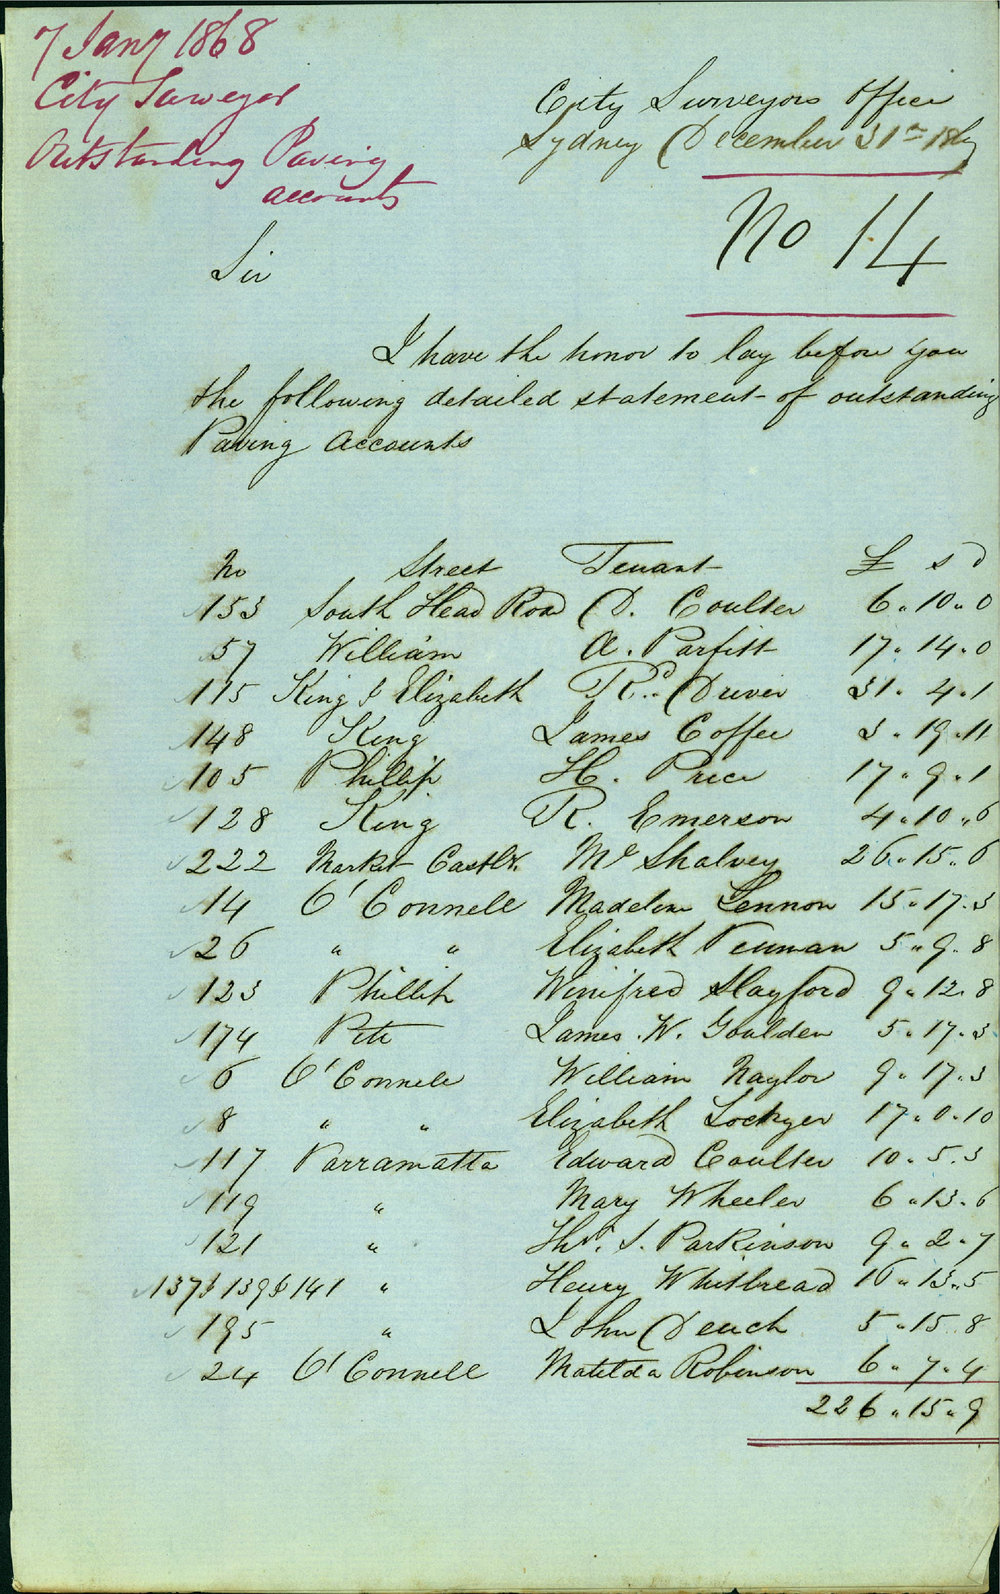 7 Jany 1868
City Surveyor
Outstanding Paving
accounts
City Surveyors Office
Sydney December 31st 1867
No 14
Sir
I have the honor to lay before you
the following detailed statement of outstanding
Paving Accounts
No Street Tenant £ s d
153 South Head Road D. Coulter 6 " 10 " 0
57 William A. Parfitt 17 " 14 " 0
115 King & Elizabeth R. Driver 31 " 4 " 1
148 King James Coffee 3 " 19 " 11
105 Phillip H. Price 17 " 9 " 1
128 King R. Emerson 4 " 10 " 6
222 Market Castlh. Mc Shalvey 26 " 15 " 6
14 O'Connell Madeline Lennon 15 " 17 " 3
26 " " Elizabeth Penman 5 " 9 " 8
123 Phillip Winifred Slayford 9 " 12 " 8
174 Pitt James. W. Goulden 5 " 17 " 3
6 O'Connell William Naylor 9 " 17 " 3
8 " " Elizabeth Lockyer 17 " 0 " 10
117 Parramatta Edward Coulter 10 " 5 " 3
119 " Mary Wheeler 6 " 13 " 6
121 " Thos. S. Parkinson 9 " 2 " 7
137 & 139 & 141 " Henry Whitbread 16 " 13 " 5
195 " John Deuch 5 " 15 " 8
24 O'Connell Matilda Robinson 6 " 7 " 4
226 " 15 " 9